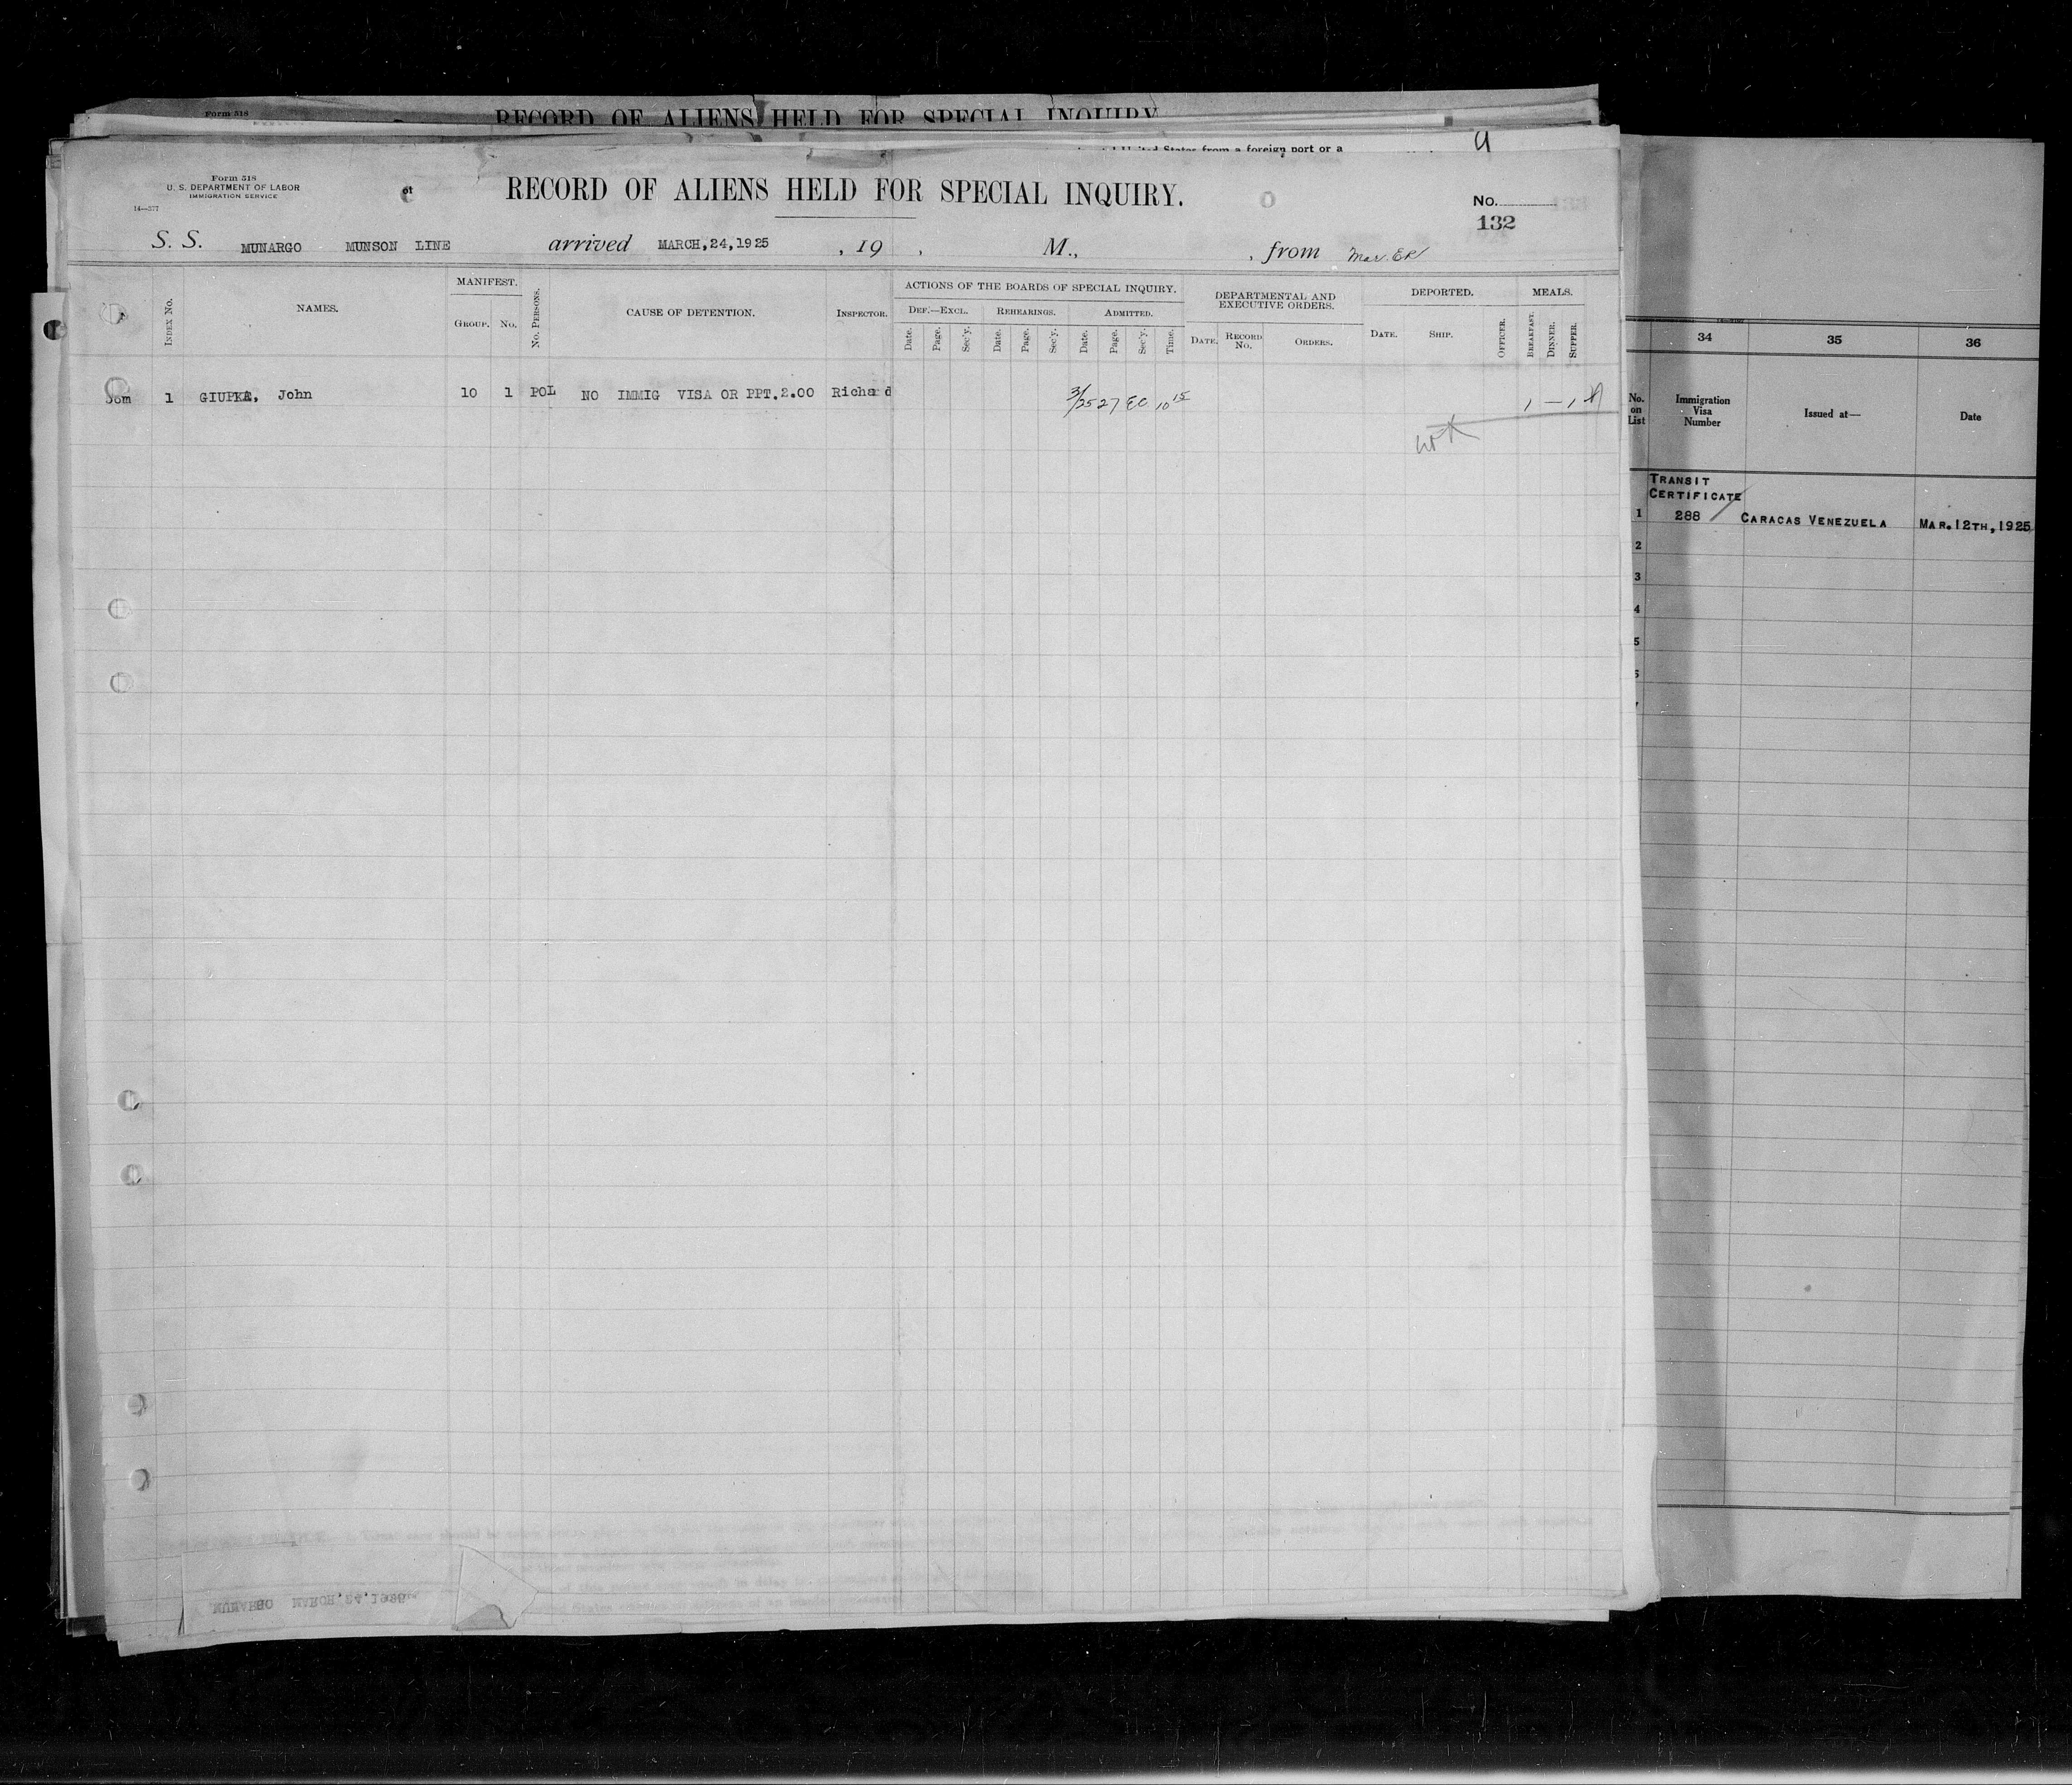 Form 518
RECORD OF ALIENS HELD FOR SPECIAL INQUIRY
United States from a foreign port or a
Form 518
U. S. DEPARTMENT OF LABOR
IMMIGRATION SERVICE
14—577
RECORD OF ALIENS HELD FOR SPECIAL INQUIRY.
No.
132
S. S. MUNARGO MUNSON LINE arrived MARCH,24,1925 , 19 , M., , from
INDEX No.
NAMES.
MANIFEST.
GROUP. No.
No. PERSONS.
CAUSE OF DETENTION.
INSPECTOR.
ACTIONS OF THE BOARDS OF SPECIAL INQUIRY.
DEF.—EXCL. REHEARINGS. ADMITTED.
Date. Page. Sec'y. Date. Page. Sec'y. Date. Page. Sec'y. Time.
DEPARTMENTAL AND
EXECUTIVE ORDERS.
DATE. RECORD No. ORDERS.
DEPORTED.
DATE. SHIP. OFFICER.
MEALS.
BREAKFAST. DINNER. SUPPER.
1 John 10 1 POL NO IMMIG VISA OR PPT.2.00 Richard 3/25 27 EC 10 15 1 — 1
34 35 36
No. on List
Immigration Visa Number
Issued at—
Date
TRANSIT
CERTIFICATE
1 288 CARACAS VENEZUELA MAR.12TH,1925
2
3
4
5
MUNARGO MARCH,24,1925